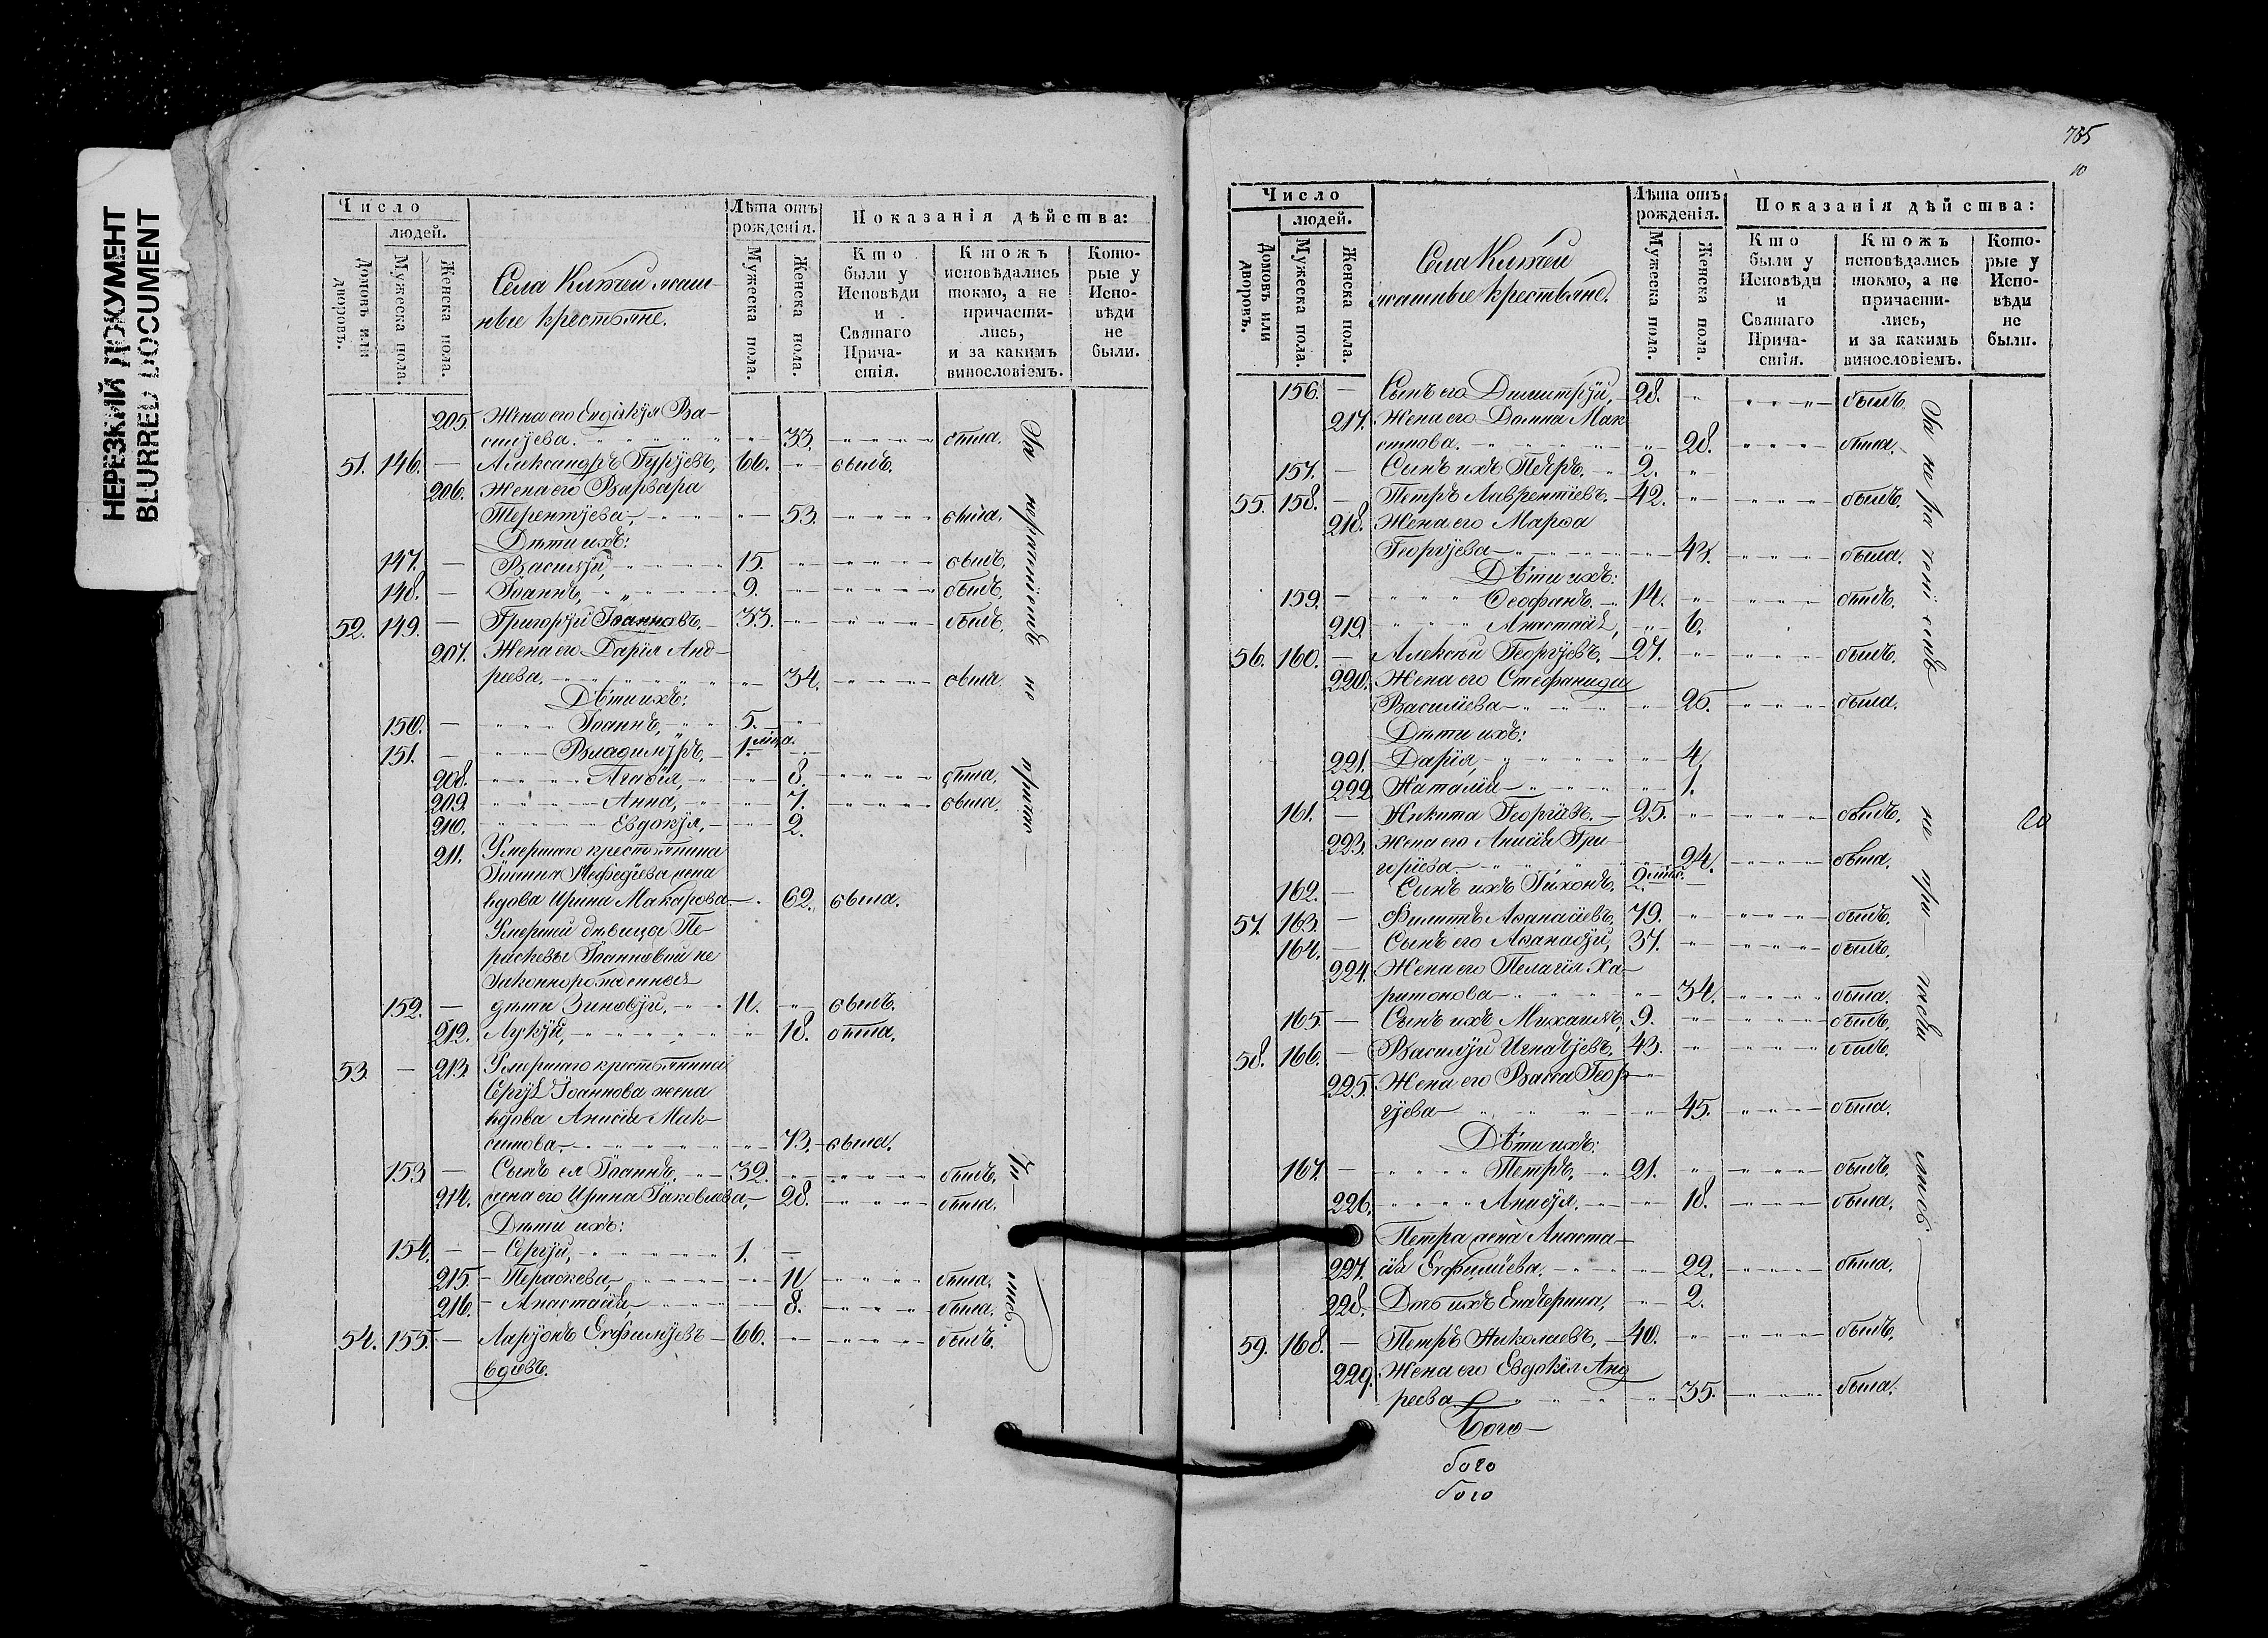 НЕРЕЗКИЙ ДОКУМЕНТ
BLURRED DOCUMENT
Число
людей.
Домовъ или дворовъ.
Мужеска пола.
Женска пола.
Села Китеи ясаш-
ные крестьяне.
Лѣта отъ рожденія.
Мужеска пола.
Женска пола.
Показанія дѣйства:
Кто были у Исповѣди и Святаго Прича-стія.
Ктожъ исповѣдались токмо, а не причасти-лись, и за какимъ винословіемъ.
Кото-рые у Испо-вѣди не были.
205. Жена его Евдокія Ва-
сильева. 33. была.
51. 146. — Александръ Гурьевъ, 66. былъ.
206. Жена его Варвара
Терентьева, 53. была.
Дѣти ихъ:
147. — Василій, 15. былъ.
148. — Іоаннъ, 9. былъ.
52. 149. — Григорій Іоанновъ, 33. былъ.
207. Жена его Дарія Анд-
реева. 34. была.
Дѣти ихъ:
150. — Іоаннъ, 5.
151. — Владиміръ, 1.
208. Агаѳія, 8. была.
209. Анна, 7. была.
210. Евдокія, 2.
211. Умершаго крестьянина
Іоанна жена
вдова Ирина Макарова 62. была.
Умершей дѣвицы Па-
раскевы Іоанновой не
законнорожденныя
152. — дѣти Зиновій, 11. былъ.
212. 18. была.
53. — 213. Умершаго крестьянина
Сергія Іоаннова жена
вдова Анисія Мак-
симова 73. была.
153 — Сынъ ея Іоаннъ, 32. былъ.
214. жена его Ирина Іаковлева, 28. была.
Дѣти ихъ:
154. — Сергій, 1.
215. Параскева, 11 была.
216. Анастасія 8. была.
54. 155. — Ларіонъ Евфиміевъ 66. былъ.
вдовъ.
За
не
причас-
785
10
Число
людей.
Домовъ или дворовъ.
Мужеска пола.
Женска пола.
Села Китеи
ясашные крестьяне.
Лѣта отъ рожденія.
Мужеска пола.
Женска пола.
Показанія дѣйства:
Кто были у Исповѣди и Святаго Прича-стія.
Ктожъ исповѣдались токмо, а не причасти-лись, и за какимъ винословіемъ.
Кото-рые у Испо-вѣди не были.
156. — Сынъ его Димитрій, 28. былъ.
217. Жена его Домна Мак
симова. 28. была.
157. — Сынъ ихъ Петръ. 2.
55. 158. — Петръ Лаврентіевъ. 42. былъ.
218. Жена его Марѳа
Георгіева 43. была.
Дѣти ихъ:
159. — Ѳеофанъ. 14. былъ.
219. Анастасія, 6.
56. 160. — Алексѣй Георгіевъ, 27. былъ.
220. Жена его Стефанида
Василіева 26. была.
Дѣти ихъ:
221. Дарія, 4.
222. Наталія 1.
161. — Никита Георгіевъ. 25. былъ.
223. Жена его Анисія Гри-
горіева 24. была.
162. — Сынъ ихъ Тихонъ. 2
57. 163. — Филиппъ Аѳанасіевъ, 79. былъ.
164. — Сынъ его Аѳанасій, 37. былъ.
224. Жена его Пелагія Ха-
ритонова 34. была.
165. — Сынъ ихъ Михаилъ, 9. былъ.
58. 166. — Василій Игнатіевъ, 43. былъ.
225. Жена его Васса Геор-
гіева 45. была.
Дѣти ихъ:
167. — Петръ, 21. былъ.
226. Анисія. 18. была.
Петра жена Анаста-
227. сія Евфиміева. 22. была.
228. Дочь ихъ Екатерина, 2.
59. 168. — Петръ Николаевъ, 40. былъ.
229. Жена его Евдокія Анд
реева 35. была.
За
не при-
Бого-
бого
бого